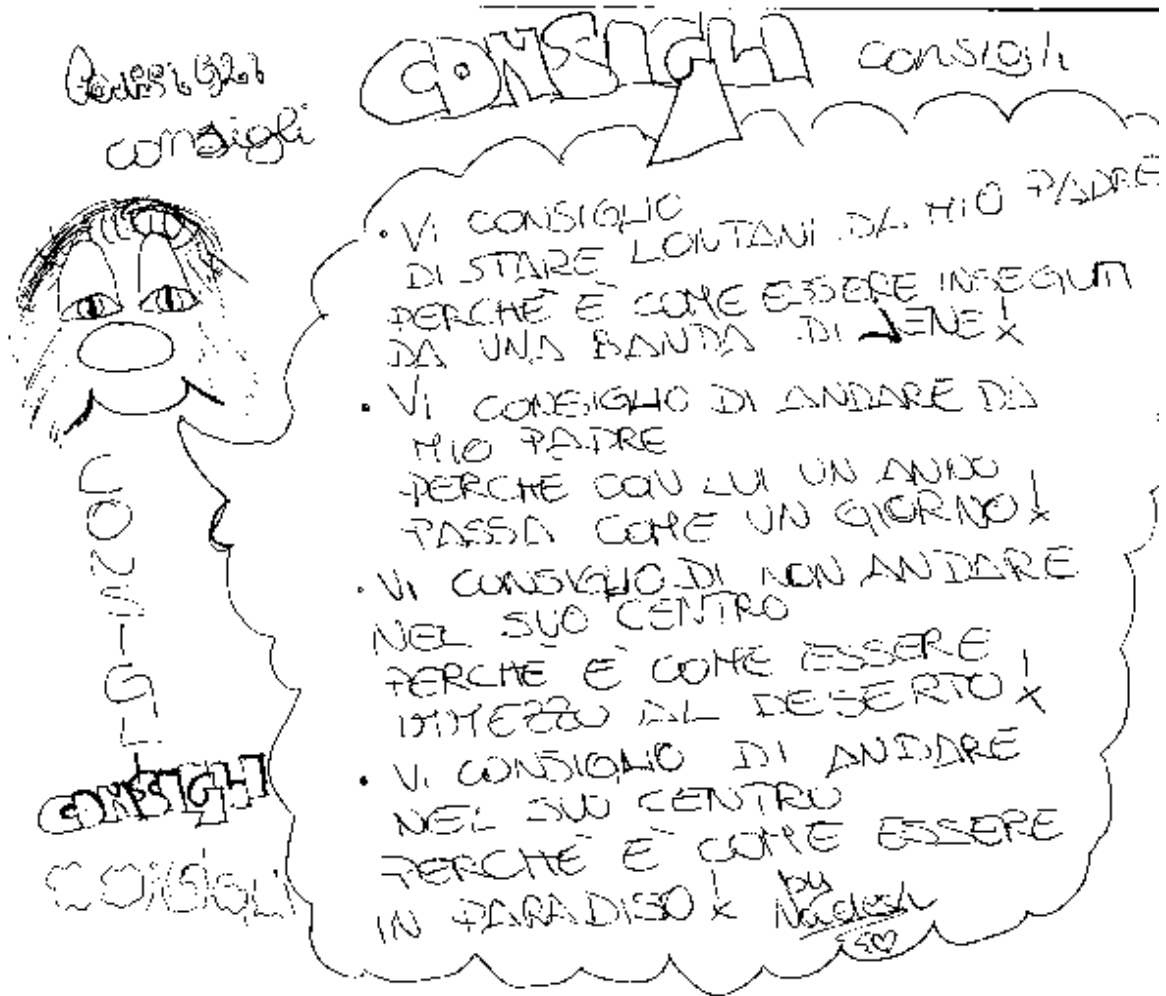 CONSIGLI
consigli
consigli
• Vi CONSIGLIO
DI STARE LONTANI DA MIO PADRE
PERCHÈ È COME ESSERE INSEGUITI
DA UNA BANDA DI IENE!
• Vi CONSIGLIO DI ANDARE DA
MIO PADRE
PERCHÈ CON LUI UN ANNO
PASSA COME UN GIORNO!
• Vi CONSIGLIO DI NON ANDARE
NEL SUO CENTRO
PERCHE È COME ESSERE
IMMEZZO AL DESERTO!
• Vi CONSIGLIO DI ANDARE
NEL SUO CENTRO
PERCHÈ È COME ESSERE
IN PARADISO!
by
CONSIGLI
CONSIGLI
CONSIGLI